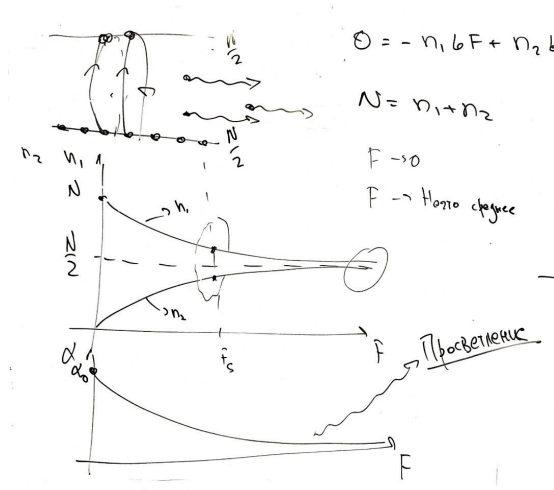 N/2
O = - n₁ б F + n₂ б
N = n₁ + n₂
N/2
F → 0
F → Нечто среднее
n₂ n₁
N
→ n₁
N/2
→ n₂
F_s
F
α
α₀
Просветление
F